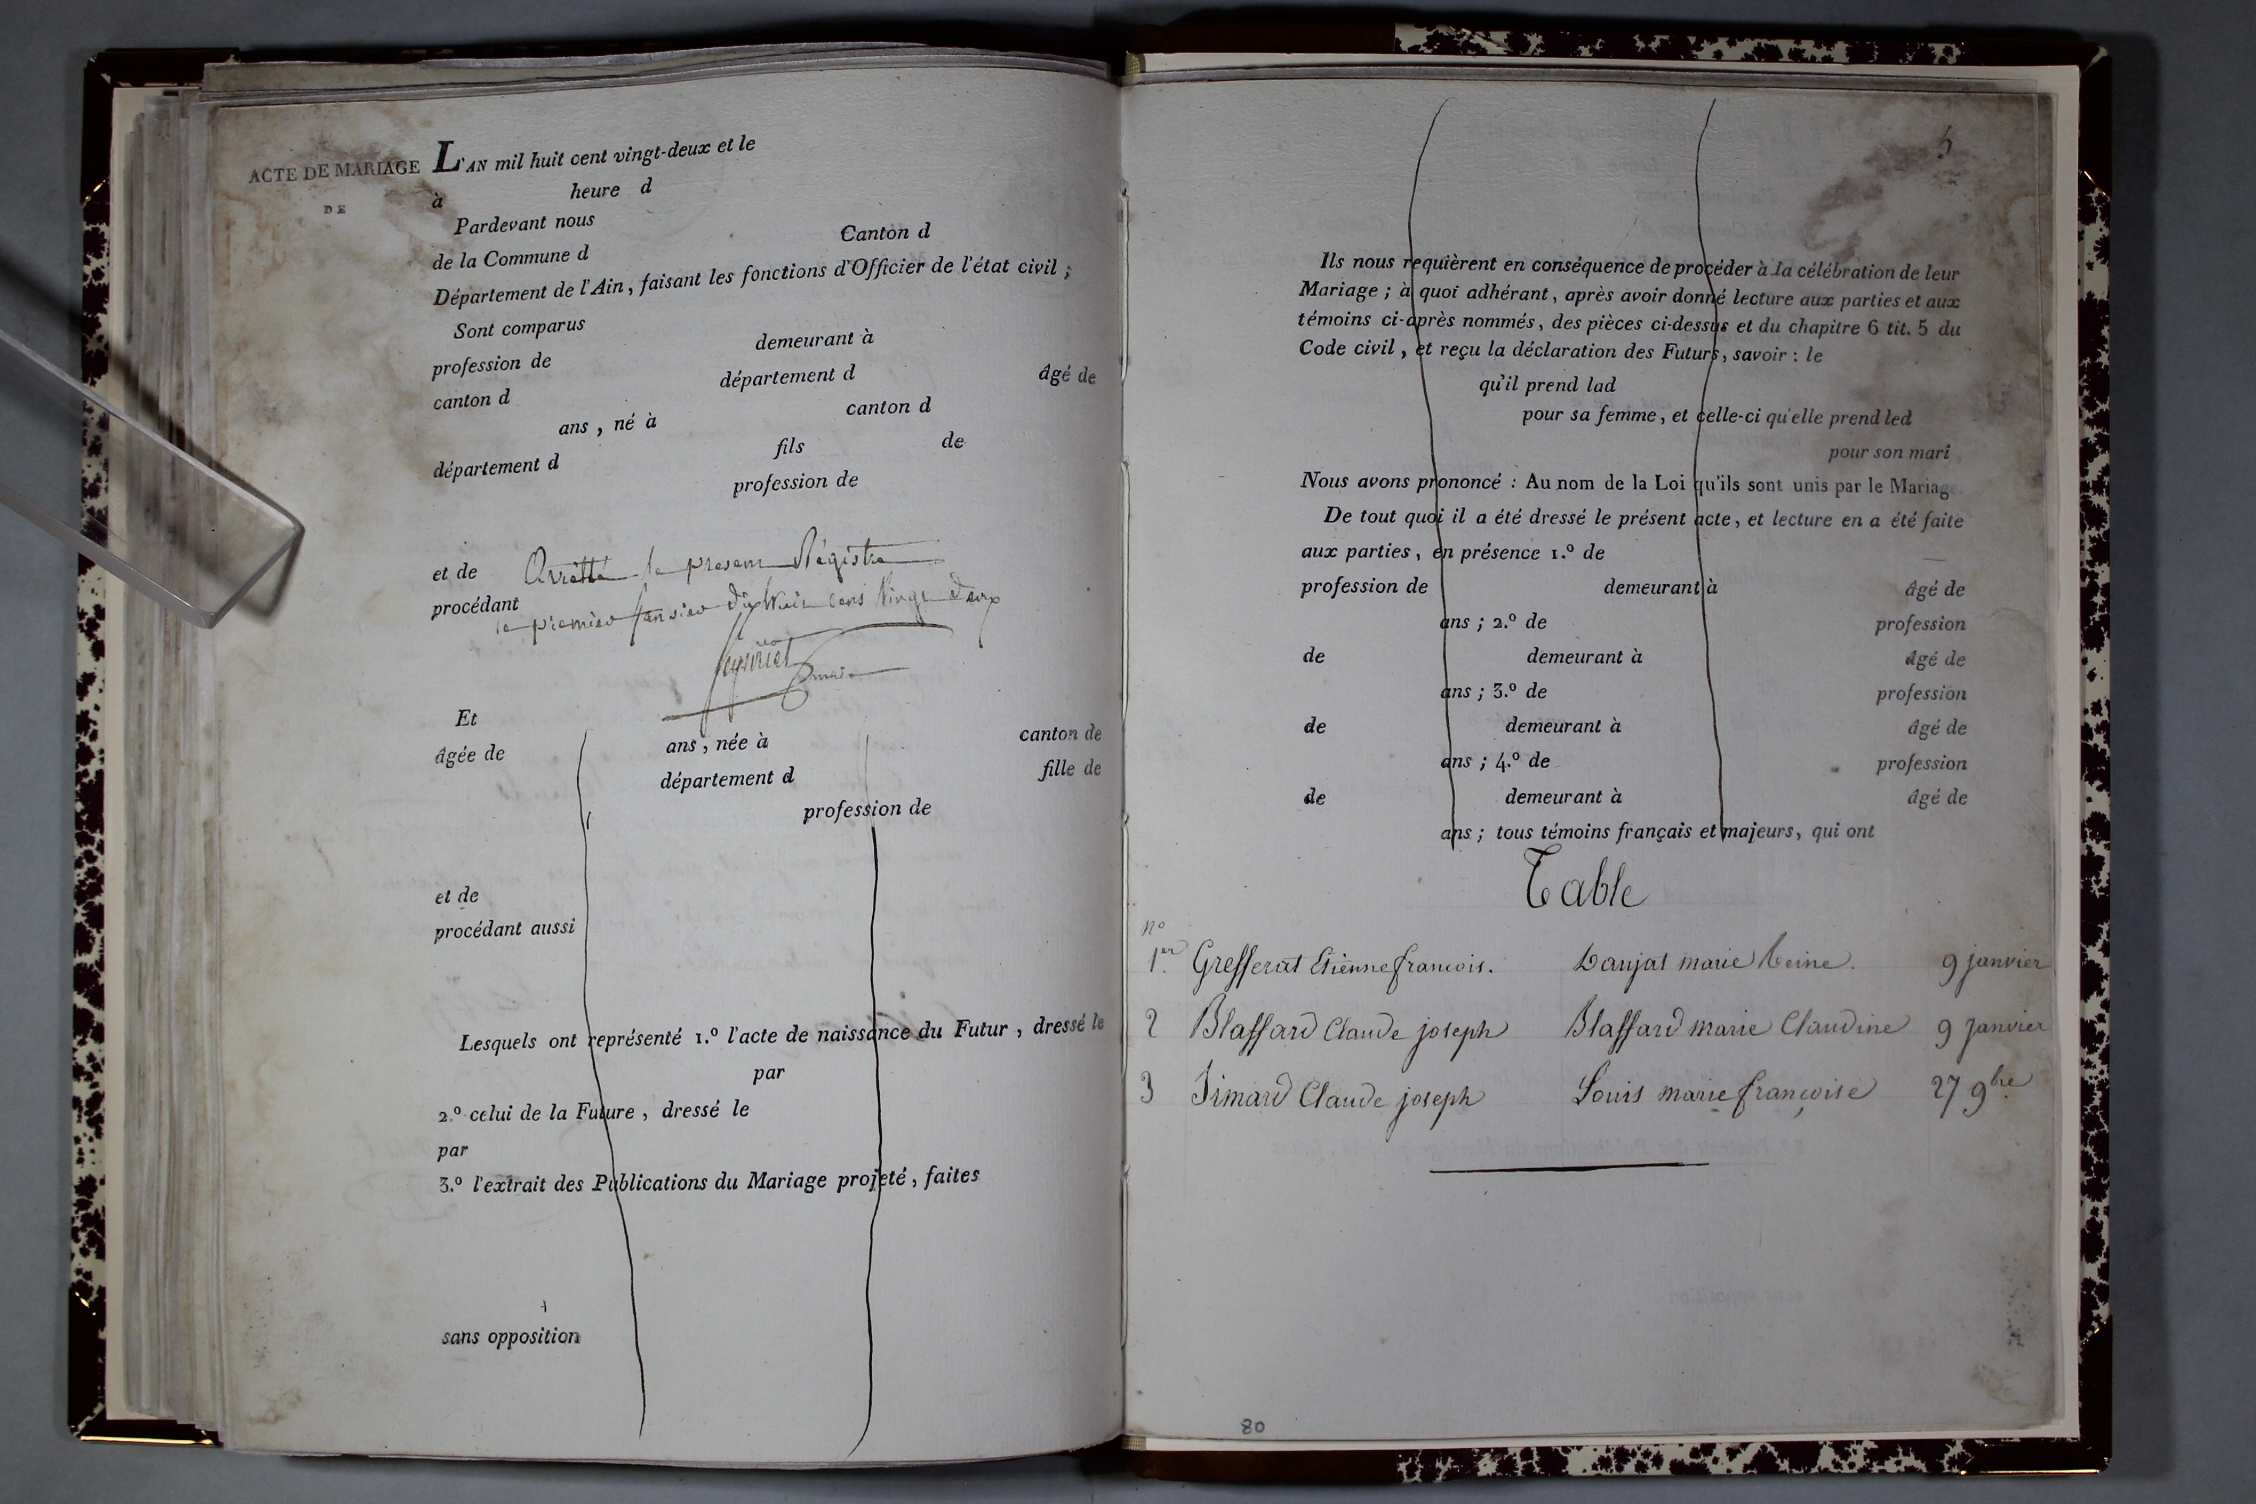 ACTE DE MARIAGE
DE
L'AN mil huit cent vingt-deux et le
à heure d
Pardevant nous
de la Commune d Canton d
Département de l'Ain, faisant les fonctions d'Officier de l'état civil ;
Sont comparus
profession de demeurant à
canton d département d âgé de
ans , né à canton d
département d fils de
profession de
et de Arretté le present Régistre
procédant
le premier Janvier dixhuit cens vingt deux
Et
âgée de ans , née à canton de
département d fille de
profession de
et de
procédant aussi
Lesquels ont représenté 1.º l'acte de naissance du Futur , dressé le
par
2.º celui de la Future , dressé le
par
3.º l'extrait des Publications du Mariage projeté , faites
sans opposition
Ils nous requièrent en conséquence de procéder à la célébration de leur
Mariage ; à quoi adhérant, après avoir donné lecture aux parties et aux
témoins ci-après nommés, des pièces ci-dessus et du chapitre 6 tit. 5 du
Code civil , et reçu la déclaration des Futurs, savoir : le
qu'il prend lad
pour sa femme, et celle-ci qu'elle prend led
pour son mari
Nous avons prononcé : Au nom de la Loi qu'ils sont unis par le Mariage
De tout quoi il a été dressé le présent acte, et lecture en a été faite
aux parties, en présence 1.º de
profession de demeurant à âgé de
ans ; 2.º de profession
de demeurant à âgé de
ans ; 3.º de profession
de demeurant à âgé de
ans ; 4.º de profession
de demeurant à âgé de
ans ; tous témoins français et majeurs, qui ont
Table
nº
1er Grefferat Etienne françois. Laujat marie Reine. 9 janvier
2 Blaffard Claude joseph Blaffard marie Claudine 9 Janvier
3 Claude joseph Louis marie françoise 27 9bre
80